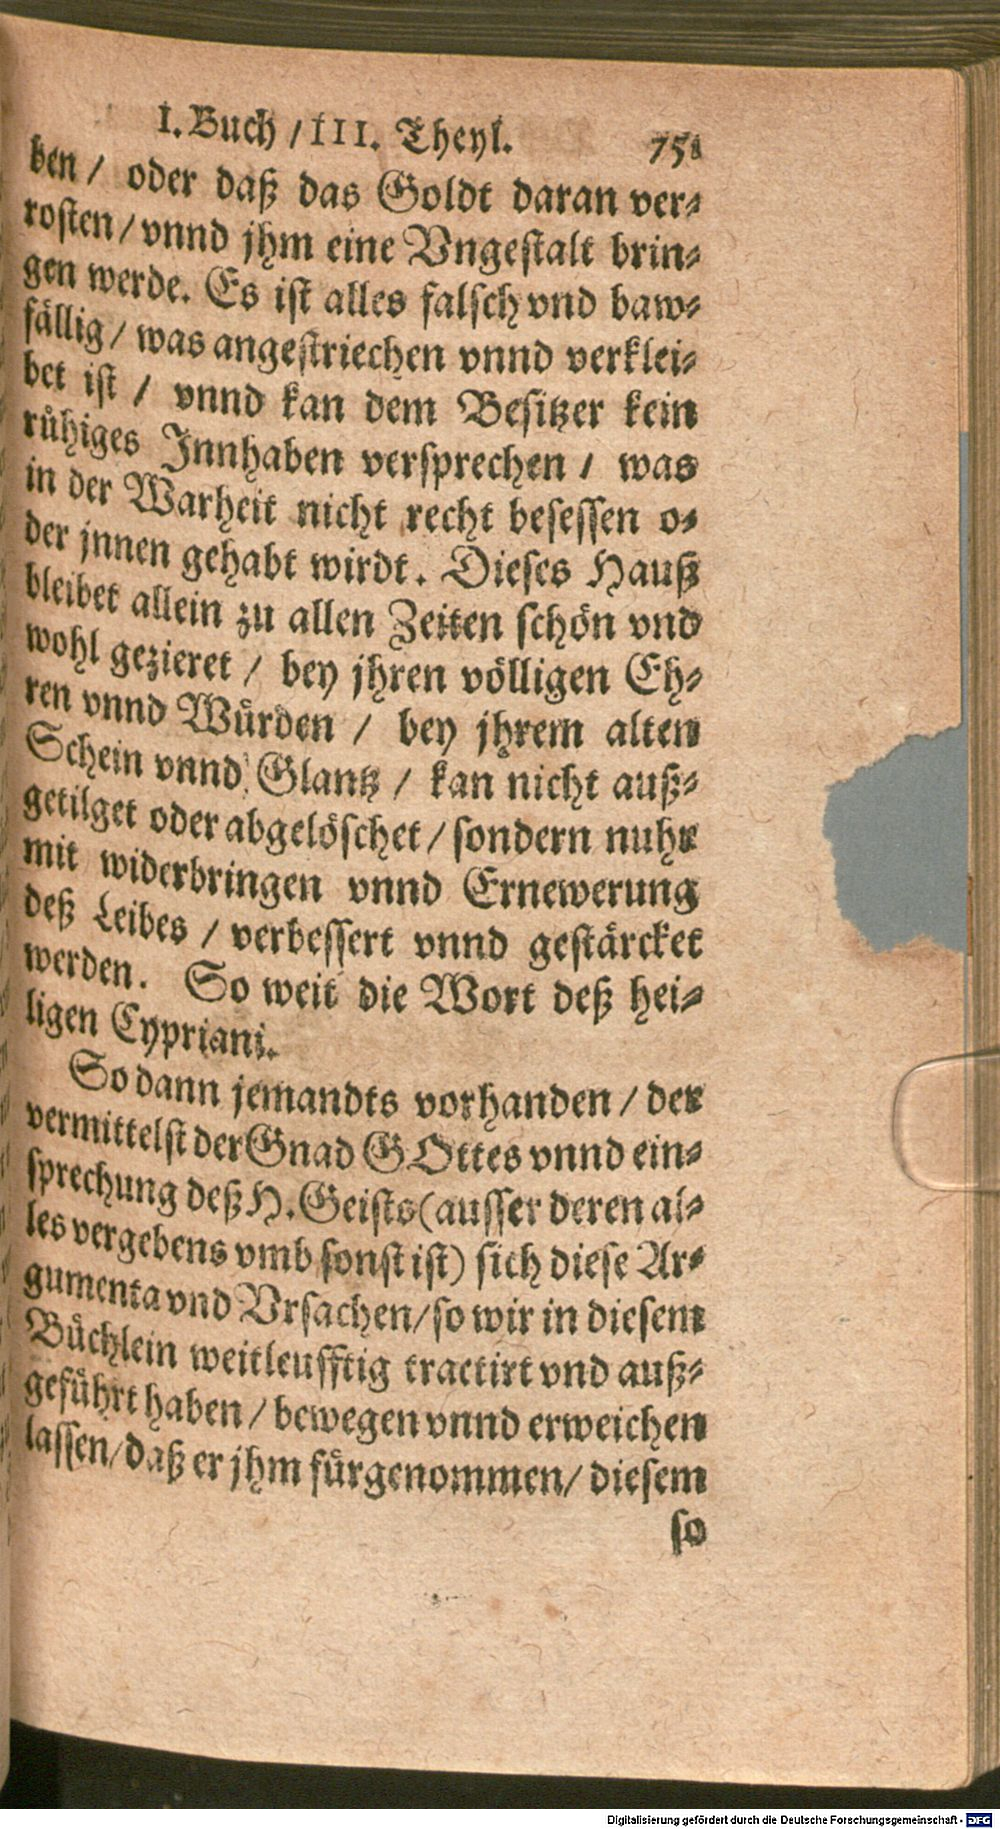 I. Buch / III. Theyl. 751
ben / oder daß das Goldt daran ver-
rosten / vnnd jhm eine Vngestalt brin-
gen werde. Es ist alles falsch vnd baw-
fällig / was angestriechen vnnd verklei-
bet ist / vnnd kan dem Besitzer kein
rühiges Innhaben versprechen / was
in der Warheit nicht recht besessen o-
der jnnen gehabt wirdt. Dieses Hauß
bleibet allein zu allen Zeiten schön vnd
wohl gezieret / bey jhren völligen Eh-
ren vnnd Würden / bey jhrem alten
Schein vnnd Glantz / kan nicht auß-
getilget oder abgelöschet / sondern nuhr
mit widerbringen vnnd Ernewerung
deß Leibes / verbessert vnnd gestärcket
werden. So weit die Wort deß hei-
ligen Cypriani.
So dann jemandts vorhanden / der
vermittelst der Gnad GOttes vnnd ein-
sprechung deß H. Geists (ausser deren al-
les vergebens vmb sonst ist) sich diese Ar-
gumenta vnd Vrsachen / so wir in diesem
Büchlein weitleufftig tractirt vnd auß-
geführt haben / bewegen vnnd erweichen
lassen / daß er jhm fürgenommen / diesem
so
Digitalisierung gefördert durch die Deutsche Forschungsgemeinschaft - DFG